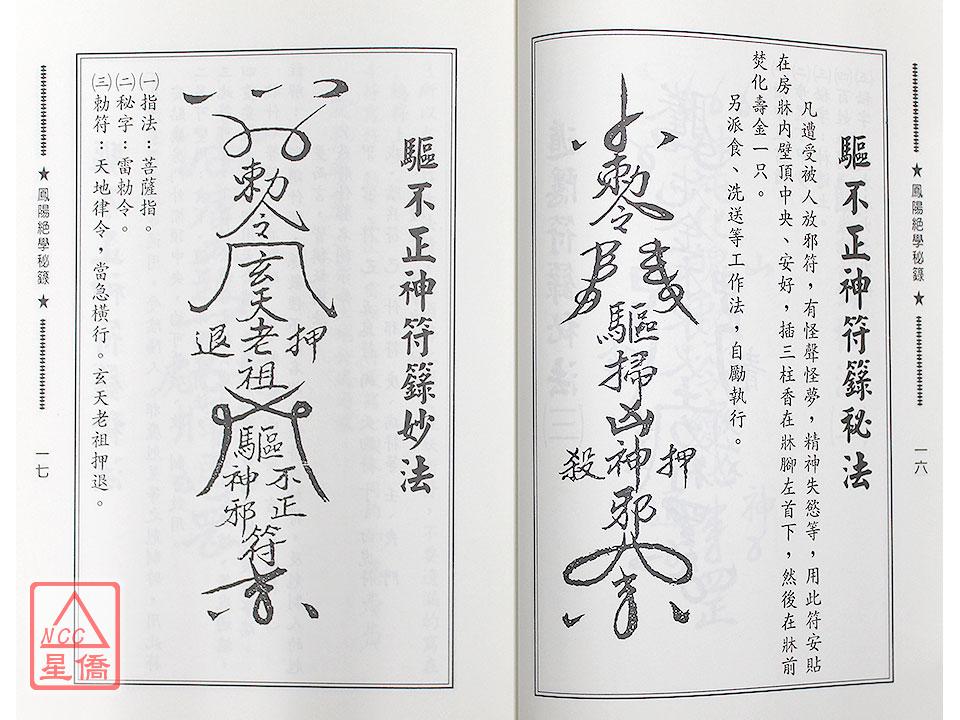 ★鳳陽絕學秘籙★
一六
驅不正神符籙秘法
凡遭受被人放邪符，有怪聲怪夢，精神失慾等，用此符安貼
在房牀內壁頂中央、安好，插三柱香在牀腳左首下，然後在牀前
焚化壽金一只。
另派食、洗送等工作法，自勵執行。
勅令
驅掃凶神邪
押
殺
驅不正神符籙妙法
勅令
玄天老祖
押
退
驅不正
神邪
符
㈠指法：菩薩指。
㈡秘字：雷勅令。
㈢勅符：天地律令，當急橫行。玄天老祖押退。
★鳳陽絕學秘籙★
一七
NCC
星僑